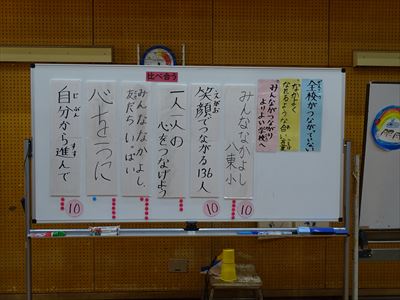 比べ合う
全校がつながっていない
なかよく
なれるような合い言葉
みんながつながり
よりよい学校へ
みんななかよし
八東小
笑顔でつながる136人
えがお
一人一人の
心をつなげよう
みんななかよし
友だちいっぱい
心を一つに
自分から進んで
じぶん
すす
10
10
10